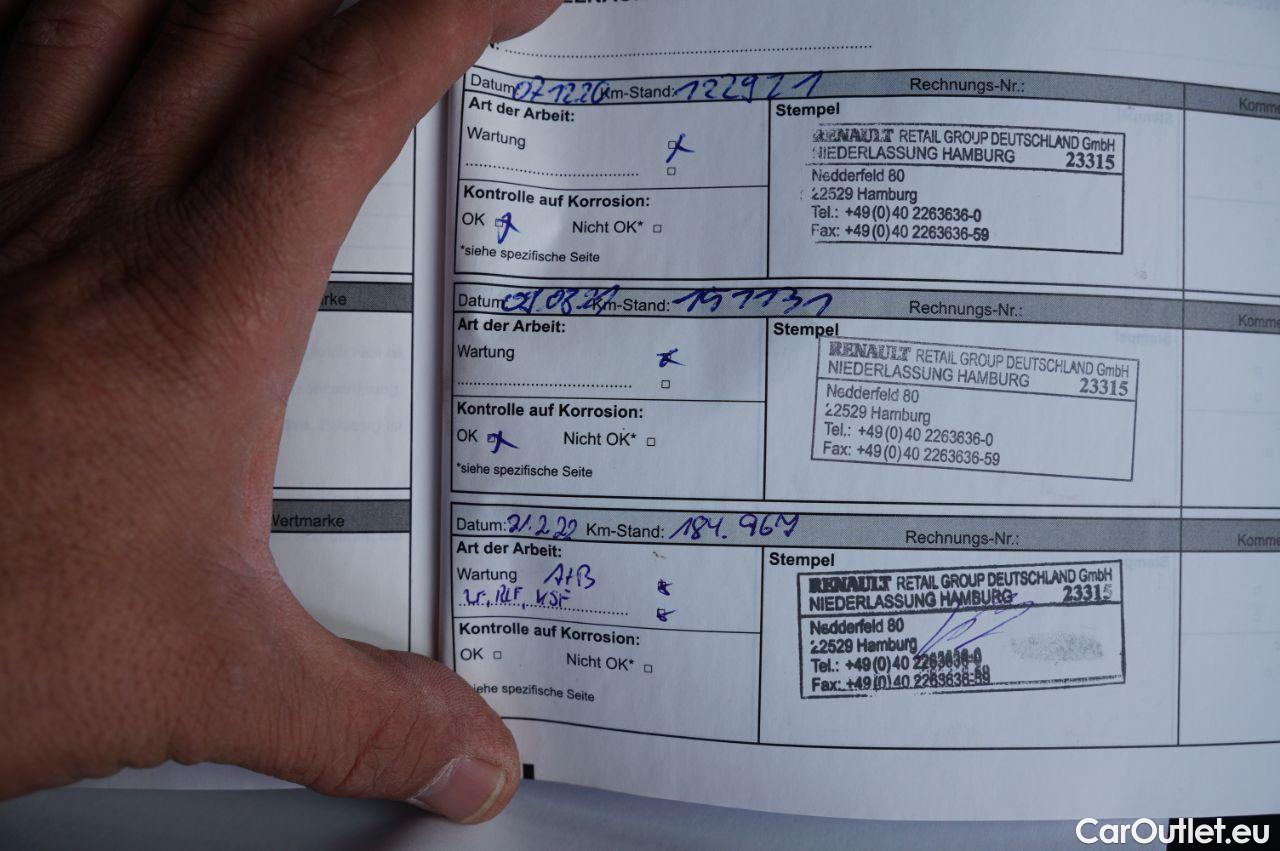 Datum: 07.12.20 Km-Stand: 122971 Rechnungs-Nr.:
Art der Arbeit:
Wartung
Kontrolle auf Korrosion:
OK Nicht OK*
*siehe spezifische Seite
Stempel
RENAULT RETAIL GROUP DEUTSCHLAND GmbH
NIEDERLASSUNG HAMBURG 23315
Nedderfeld 80
22529 Hamburg
Tel.: +49(0)40 2263636-0
Fax: +49(0)40 2263636-59
rke
Datum Km-Stand: 151131 Rechnungs-Nr.:
Art der Arbeit:
Wartung
Kontrolle auf Korrosion:
OK Nicht OK*
*siehe spezifische Seite
Stempel
RENAULT RETAIL GROUP DEUTSCHLAND GmbH
NIEDERLASSUNG HAMBURG 23315
Nedderfeld 80
22529 Hamburg
Tel.: +49(0)40 2263636-0
Fax: +49(0)40 2263636-59
Wertmarke
Datum: 21.2.22 Km-Stand: 184.967 Rechnungs-Nr.:
Art der Arbeit:
Wartung A+B
Kontrolle auf Korrosion:
OK Nicht OK*
siehe spezifische Seite
Stempel
RENAULT RETAIL GROUP DEUTSCHLAND GmbH
NIEDERLASSUNG HAMBURG 23315
Nedderfeld 80
22529 Hamburg
Tel.: +49(0)40 2263636-0
Fax: +49(0)40 2263636-59
Komme
Komme
Komme
CarOutlet.eu